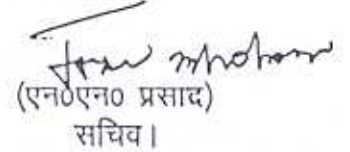 (एन०एन० प्रसाद)
सचिव।